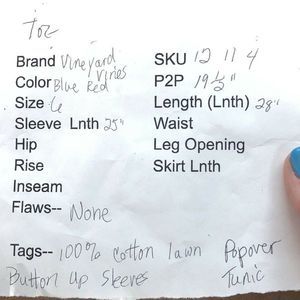 Toz
Brand Vineyard Vines SKU 12 11 4
Color Blue Red P2P 19 1/2"
Size 6 Length (Lnth) 28"
Sleeve Lnth 25" Waist
Hip Leg Opening
Rise Skirt Lnth
Inseam
Flaws-- None
Tags-- 100% cotton lawn Popover
Button Up Sleeves Tunic